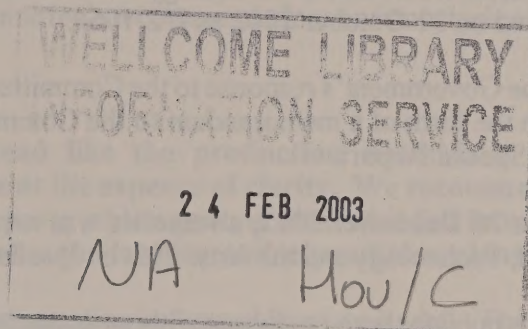 WELLCOME LIBRARY
INFORMATION SERVICE
24 FEB 2003
NA Hou/C